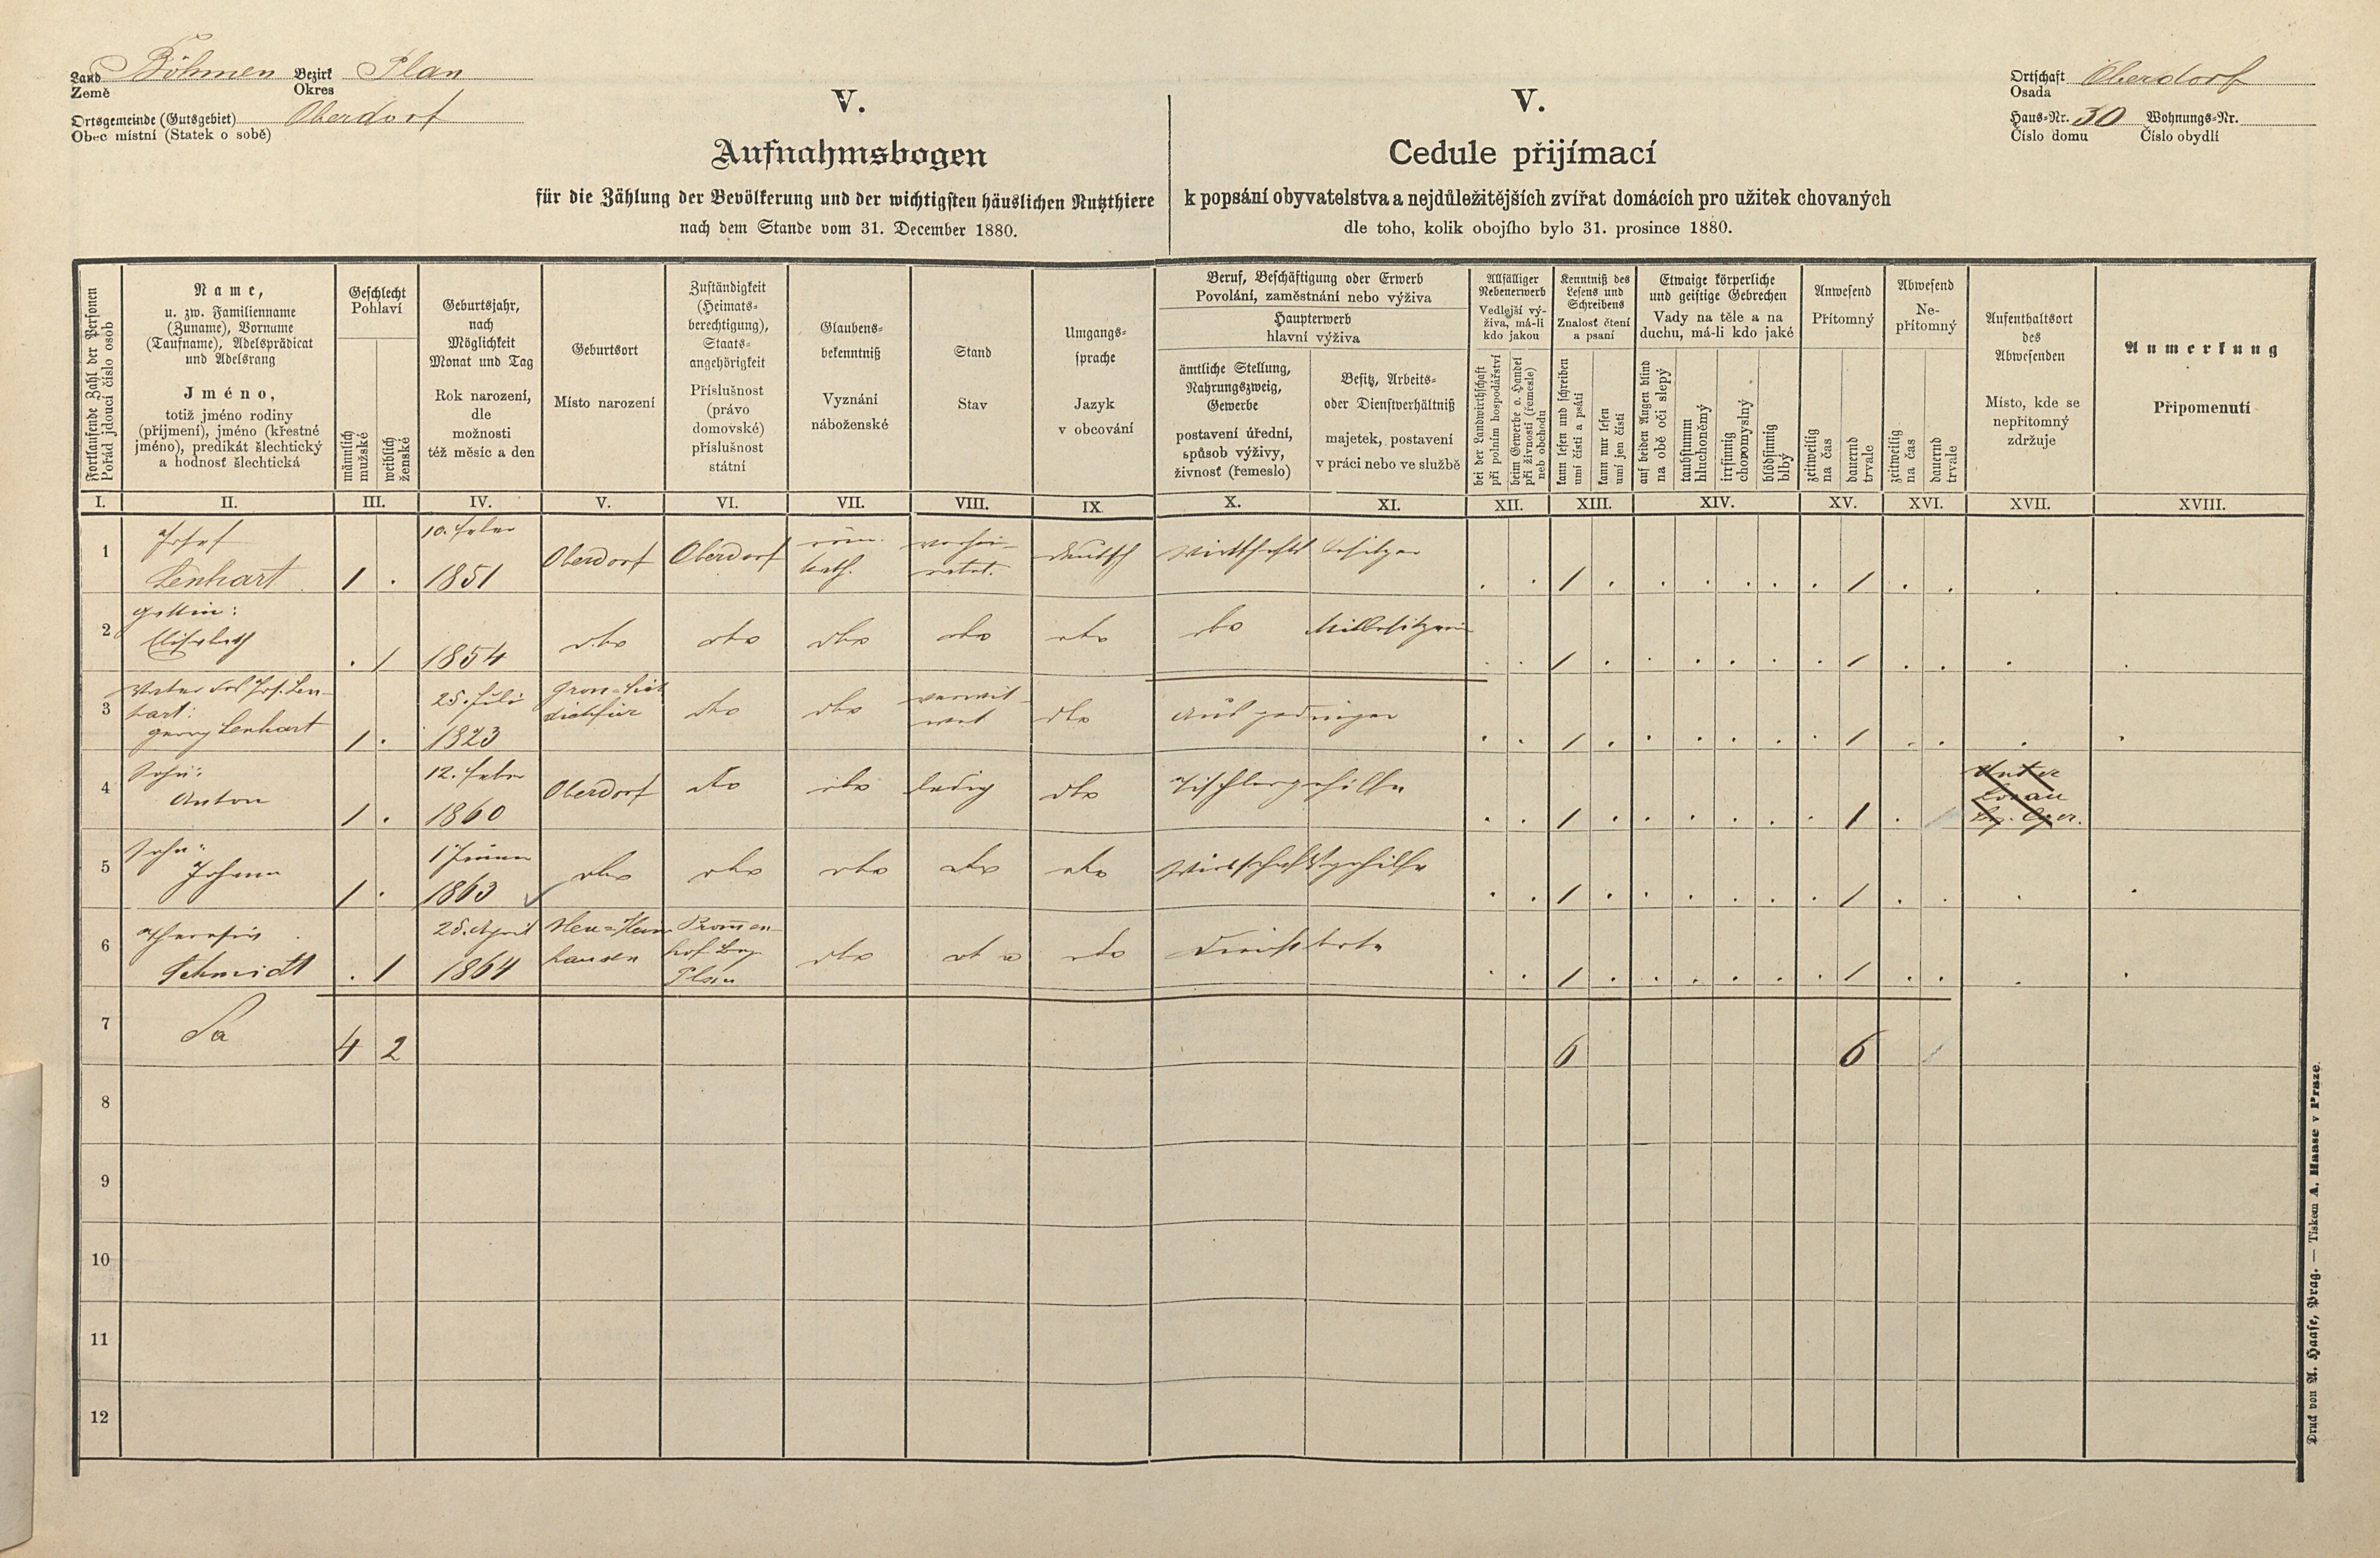 Land Böhmen Bezirk Plan
Země Okres
Ortsgemeinde (Gutsgebiet) Oberdorf
Obec místní (Statek o sobě)
V.
Aufnahmsbogen
für die Zählung der Bevölkerung und der wichtigsten häuslichen Nutzthiere
nach dem Stande vom 31. December 1880.
V.
Cedule přijímací
k popsání obyvatelstva a nejdůležitějších zvířat domácích pro užitek chovaných
dle toho, kolik obojího bylo 31. prosince 1880.
Ortschaft Oberdorf
Osada
Haus-Nr. 30 Wohnungs-Nr.
Číslo domu Číslo obydlí
Fortlaufende Zahl der Personen
Pořád jdoucí číslo osob
Name,
u. zw. Familienname
(Zuname), Vorname
(Taufname), Adelsprädicat
und Adelsrang
Jméno,
totiž jméno rodiny
(příjmení), jméno (křestné
jméno), predikát šlechtický
a hodnosť šlechtická
Geschlecht
Pohlaví
männlich
mužské
weiblich
ženské
Geburtsjahr,
nach
Möglichkeit
Monat und Tag
Rok narození,
dle
možnosti
též měsíc a den
Geburtsort
Místo narození
Zuständigkeit
(Heimats-
berechtigung),
Staats-
angehörigkeit
Příslušnost
(právo
domovské)
příslušnost
státní
Glaubens-
bekenntniß
Vyznání
náboženské
Stand
Stav
Umgangs-
sprache
Jazyk
v obcování
Beruf, Beschäftigung oder Erwerb
Povolání, zaměstnání nebo výživa
Haupterwerb
hlavní výživa
ämtliche Stellung,
Nahrungszweig,
Gewerbe
postavení úřední,
způsob výživy,
živnosť (řemeslo)
Besitz, Arbeits-
oder Dienstverhältniß
majetek, postavení
v práci nebo ve službě
Allfälliger
Nebenerwerb
Vedlejší vý-
živa, má-li
kdo jakou
bei der Landwirthschaft
při polním hospodářství
beim Gewerbe o. Handel
při živnosti (řemesle)
neb obchodu
Kenntniß des
Lesens und
Schreibens
Znalosť čtení
a psaní
kann lesen und schreiben
umí čísti a psáti
kann nur lesen
umí jen čísti
Etwaige körperliche
und geistige Gebrechen
Vady na těle a na
duchu, má-li kdo jaké
auf beiden Augen blind
na obě oči slepý
taubstumm
hluchoněmý
irrsinnig
choromyslný
blödsinnig
blbý
Anwesend
Přítomný
zeitweilig
na čas
dauernd
trvale
Abwesend
Ne-
přítomný
zeitweilig
na čas
dauernd
trvale
Aufenthaltsort
des
Abwesenden
Místo, kde se
nepřítomný
zdržuje
Anmerkung
Připomenutí
I. II. III. IV. V. VI. VII. VIII. IX. X. XI. XII. XIII. XIV. XV. XVI. XVII. XVIII.
1 Josef
Lenhart 1 . 10. Feber
1851 Oberdorf Oberdorf röm.
kath. verhei-
ratet. deutsch Wirtschafts besitzer . . 1 . . . . . . 1 . . . .
2 Gattin:
Elisabeth . 1 1854 dto dto dto dto dto dto Mitbesitzerin . . 1 . . . . . . 1 . . . .
3 Vater des Jos. Len-
hart:
Georg Lenhart 1 . 25. Juli
1823 dto dto verwit-
wet dto Ausgedinger . . 1 . . . . . . 1 . . . .
4 Sohn:
Anton 1 . 12. Feber
1860 Oberdorf dto dto ledig dto Tischlergehilfe . . 1 . . . . . . 1 .
5 Sohn:
Johann 1 . 1863 dto dto dto dto dto Wirtschaftsgehilfe . . 1 . . . . . . 1 . . . .
6 Theresia
Schmidt . 1 25. April
1864 Promen-
hof Bez.
Plan dto dto dto Dienstbote . . 1 . . . . . . 1 . . . .
7 Sa 4 2 6 6
8
9
10
11
12
Druck von A. Haase, Prag. — Tiskem A. Haase v Praze.